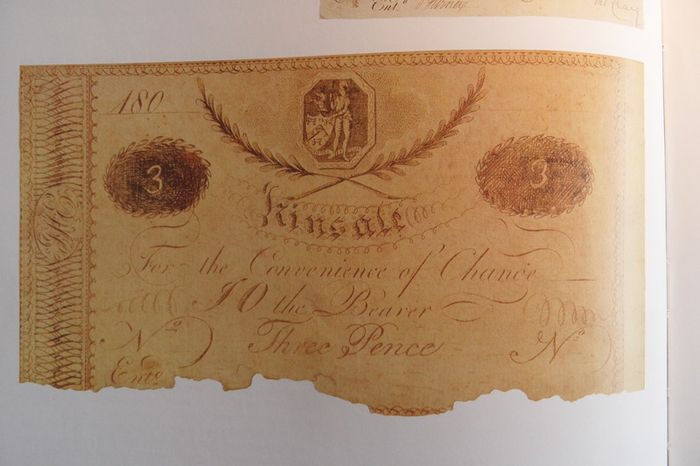 Ent.d
180
3 3
Kinsale
For the Convenience of Change
I O the Bearer
Nº Three Pence Nº
Entd